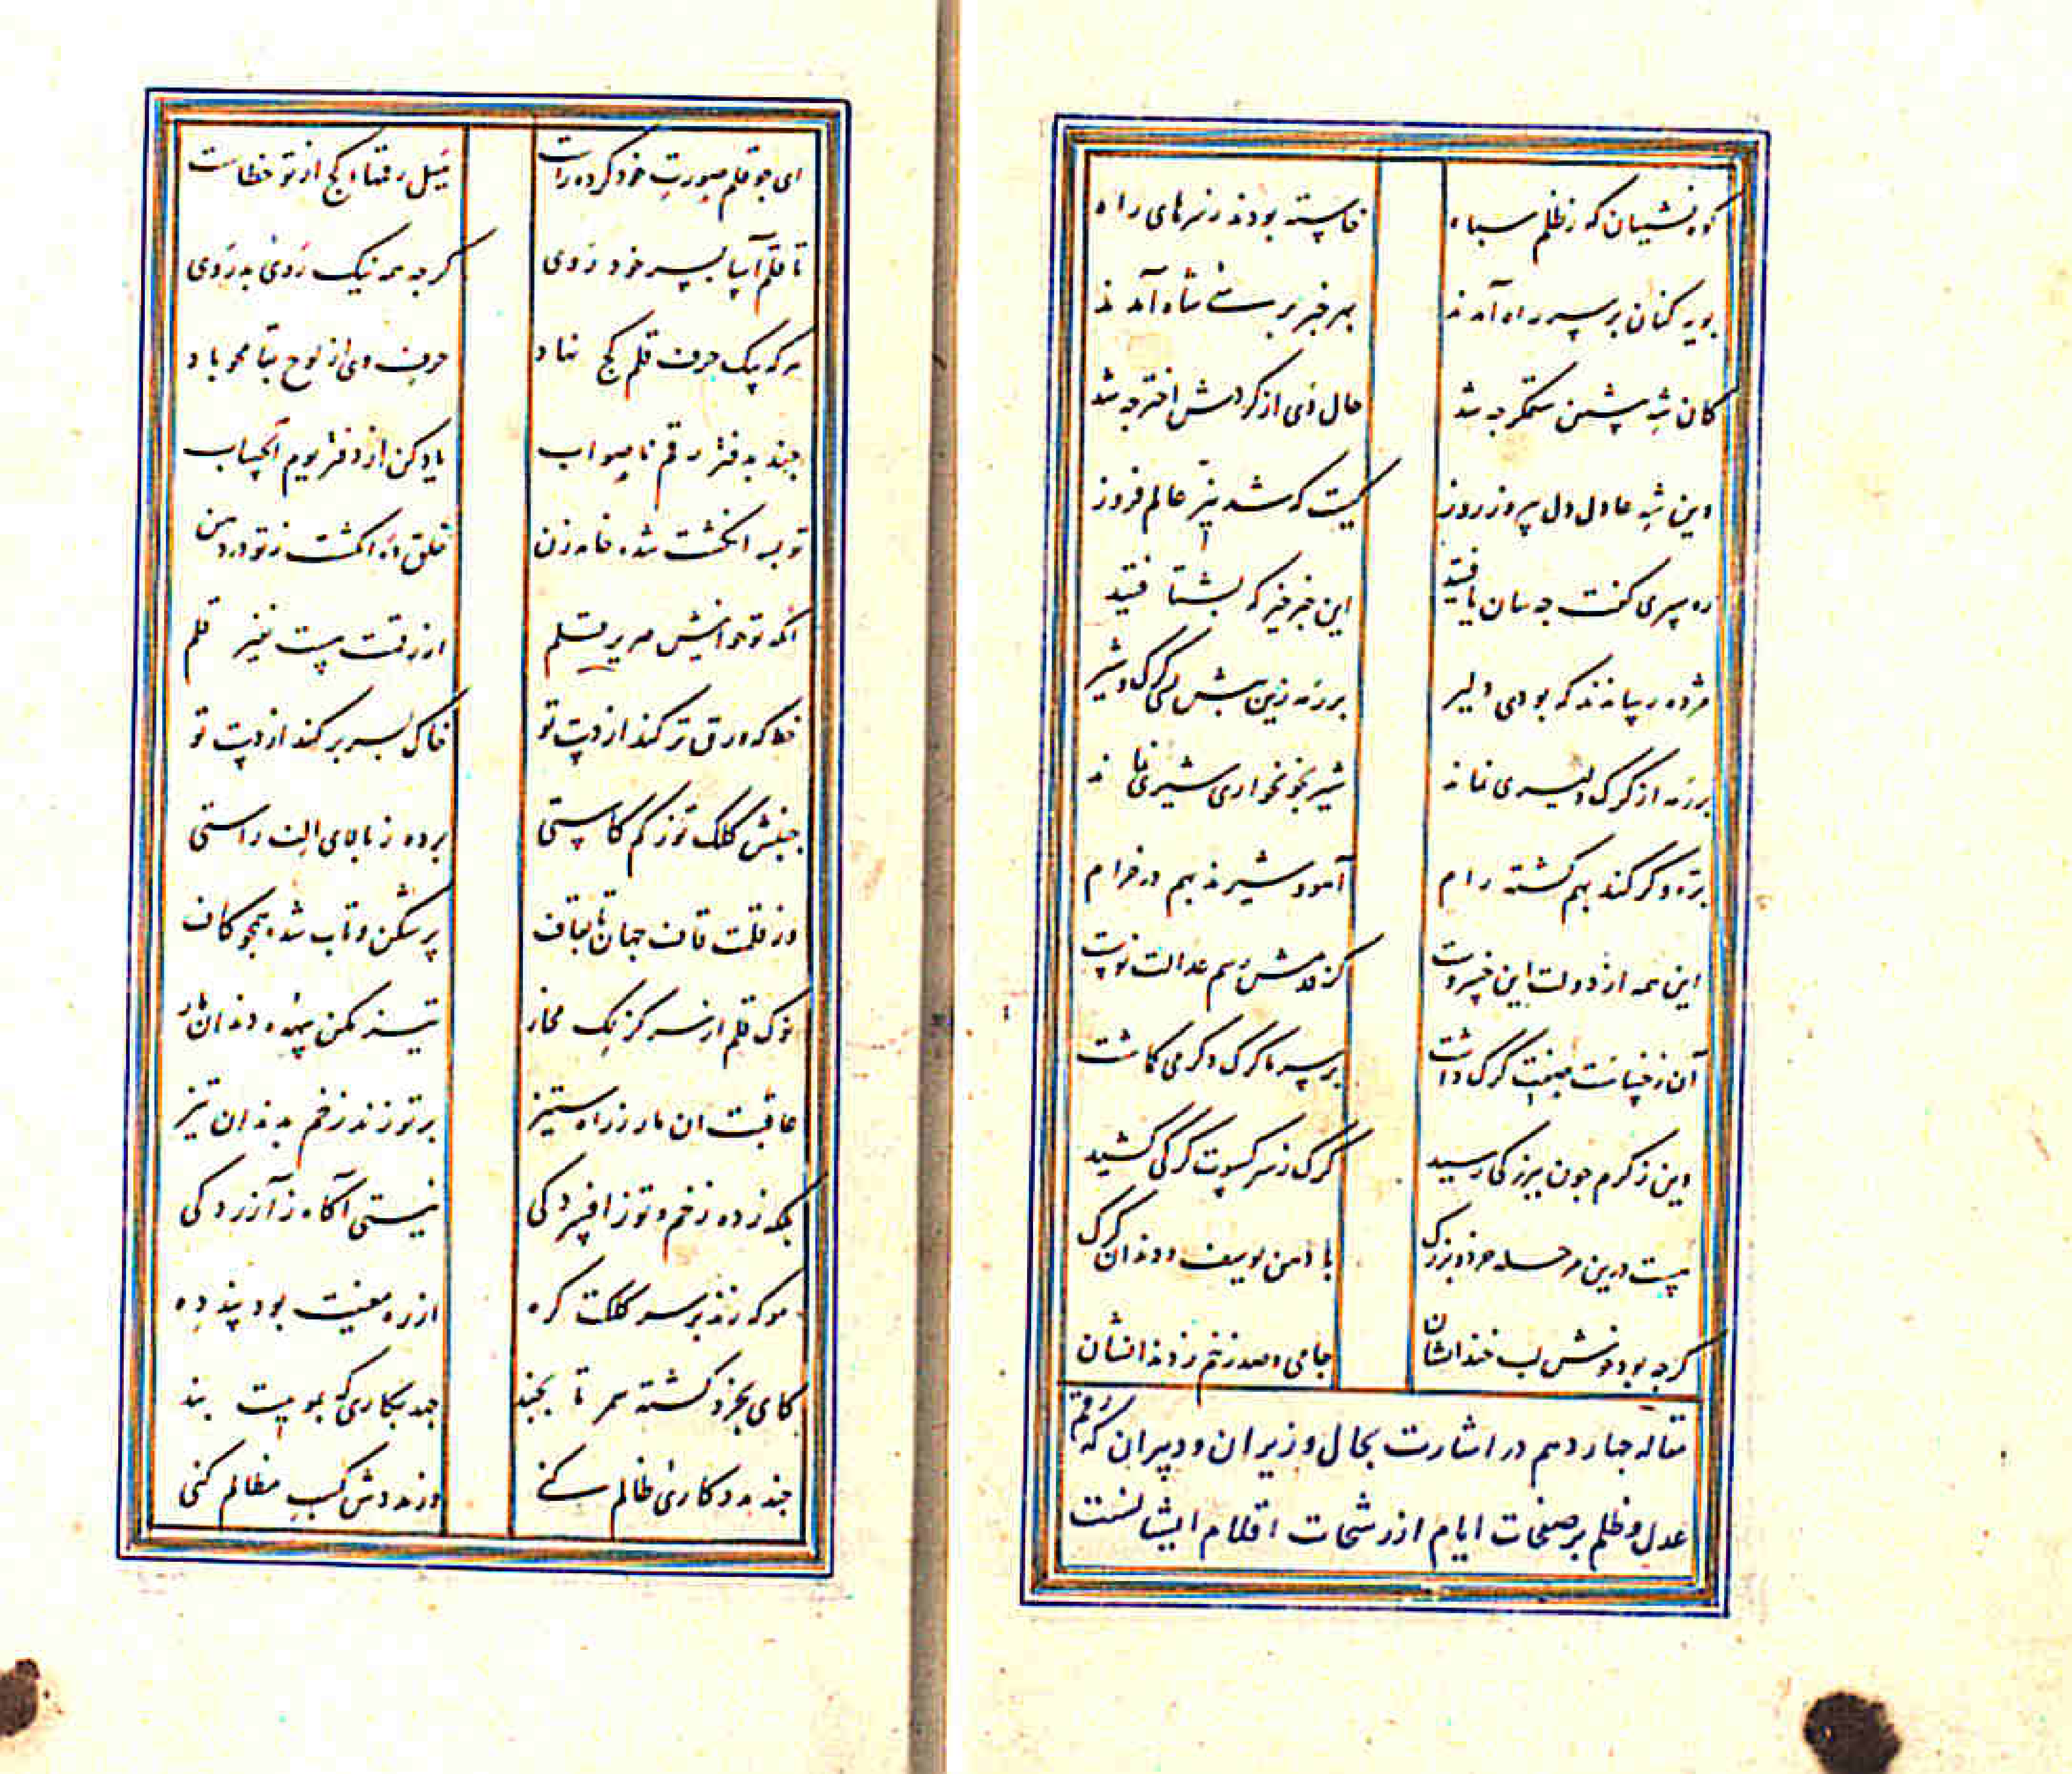 کوه نشینان که ز ظلم سپاه خاسته بودند ز سرهای راه
پویه کنان بر سر راه آمدند بهر خبر برسئ شاه آمدند
کان شه پشین ستمکر چه شد حال وی از کردش اختر چه شد
وین شه عادل دل پیروز روز کیست که شد نیر عالم فروز
ره سپری کفت چه سان یافتید این خبر خیر که بشتافتید
مژده رسانند که بودی دلیر بر رمه زین بیش سک کرک و شیر
بر رمه از کرک دلیری نماند شیر بخونخواری شیری نماند
بره و کرکند بهم کشته رام آهو و شیرند بهم در خرام
این همه از دولت این خسروست کز قدمش رسم عدالت نوست
آن ز خیانت صفت کرک داشت بر سر ما کرک دکر می کماشت
وین ز کرم چون ببزرکی رسید کرک ز سر کسوت کرکی کشید
نیست درین مرحله خرد و بزرک با دهن یوسف و دندان کرک
کرچه بود خوش لب خندانشان جامی و صد زخم ز دندانشان
مقاله چهاردهم در اشارت بحال وزیران و دبیران که رقم
عدل و ظلم بر صفحات ایام از رشحات اقلام ایشانست
ای چو قلم صورت خود کرده راست میل رقمهاء کج از تو خطاست
تا قلم آسا بسر خود روی کرچه همه نیک روی بد روی
هر که بیک حرف قلم کج نهاد حرف وی از لوح بقا محو باد
چند بدفتر رقم ناصواب یاد کن از دفتر یوم الحساب
تو بسه انکشت شده خامه زن خلق ده انکشت ز تو در دهن
آنکه تو خوانیش صریر قلم از رقمت نیست نفیر قلم
خطا که ورق تر کند از دست تو خاک بسر بر کند از دست تو
جنبش کلک تو ز کم کاستی برده ز بالای الف راستی
وز قلمت قاف جهان تا بقاف پر شکن و تاب شده همچو کاف
نوک قلم از سر کزلک مخار تیز مکن بیهده دندان مار
عاقبت ان مار ز راه ستیز بر تو زند زخم بدندان تیز
بلکه زده زخم و تو ز افسردکی نیستی آکاه ز آزردکی
موکه زند بر سر کلکت کره از ره معنیت بود پند ده
کای بخرد کشته سمر تا بچند چند بکاری که بموییست بند
چند مددکارئ ظالم کنی وز مددش کسب مظالم کنی